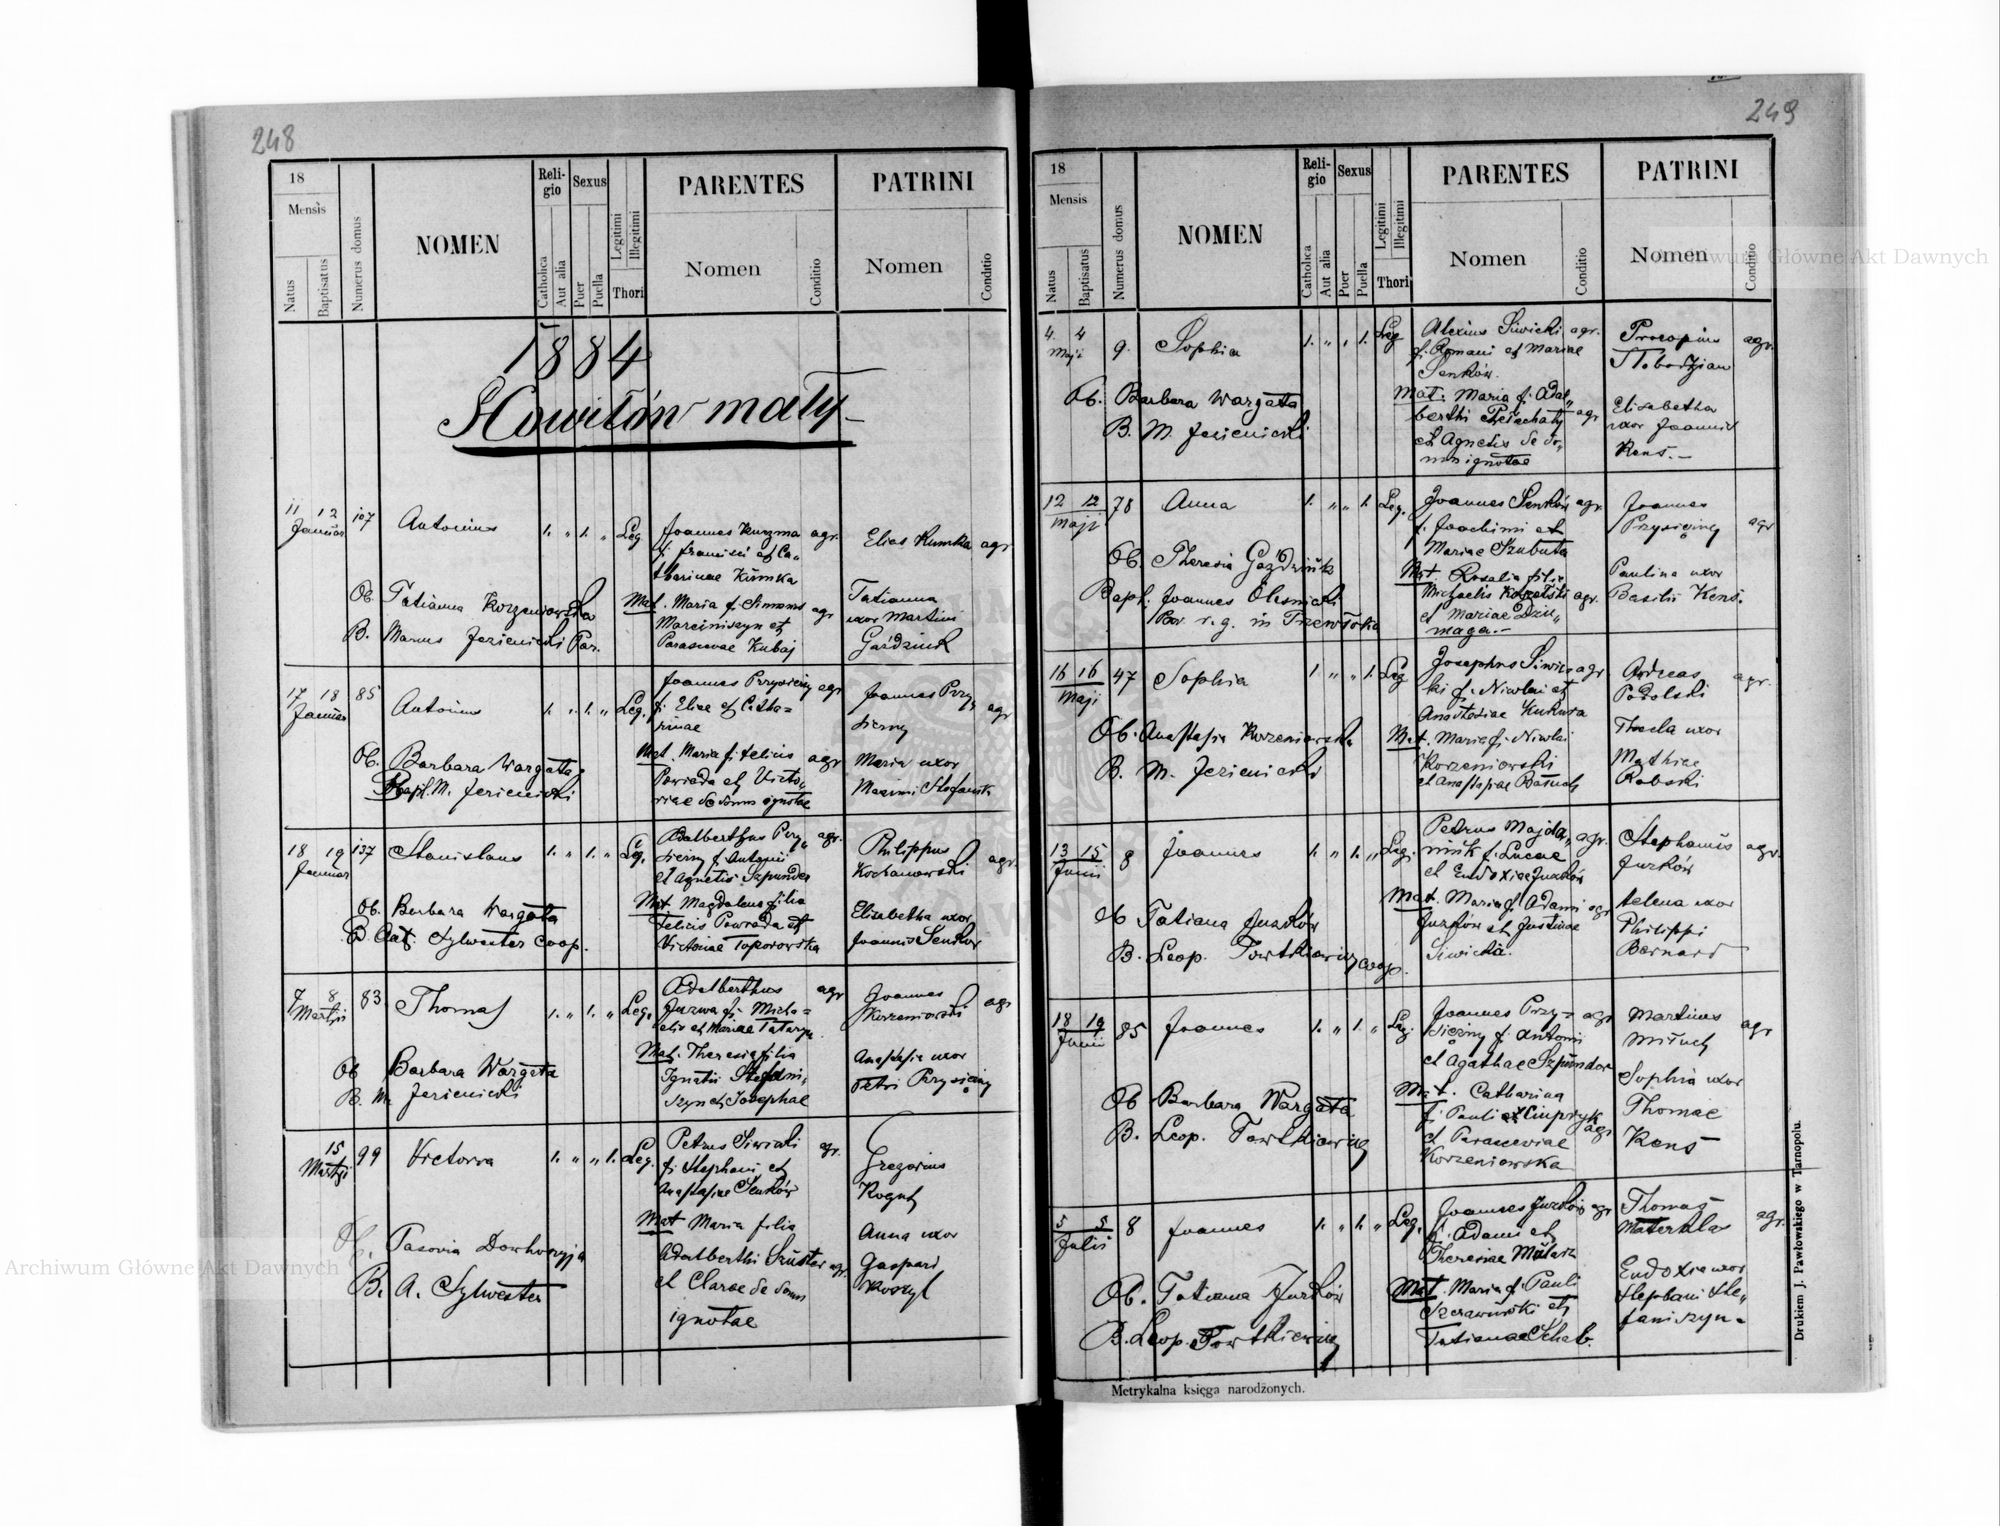 248
18
Mensis
Natus
Baptisatus
Numerus domus
NOMEN
Religio
Catholica
Aut alia
Sexus
Puer
Puella
Legitimi
Illegitimi
Thori
PARENTES
Nomen
Conditio
PATRINI
Nomen
Conditio
1884
Howiłów mały
11 12 107 Antonius 1. " 1. " Leg. Joannes Kuzma agr. Elias Kumka agr
Januar
f. Francisci et Ca-
tharinae Kumka
Ob. Tatianna Korzeniowska
Mat. Maria f. Simonis agr
Tatianna
uxor Martini
Marciniszyn et
B. Marcus Jezienicki Par.
Parascevae Kubaj
Gaździuk
17 18 85 Antonius 1. " 1. " Leg. Joannes Przysiężny agr
Januar
f. Eliae et Catha-
rinae
Joannes Przy-
siężny agr
Ob. Barbara Wargata
Mat. Maria f. Felicis agr
Maria uxor
Bapt. M. Jezienicki
Powrada et Victo-
riae de domo ignotae
Maximi Stefaniuk
18 19 137 Stanislaus 1. " 1. " Leg. Adalberthus Przy- agr.
Januar
siężny f. Antonii
et Agnetis Szpunder
Philippus
Kochanowski agr.
Ob. Barbara Wargata
Mat. Magdalena filia
Felicis Powrada et
Victoriae Toporowska
Elisabetha uxor
Joannis Senkow
B. Ant. Sylwester coop.
7 8 83 Thomas 1. " 1. " Leg. Adalberthus agr
Martii
Jurwa f. Micha-
elis et Mariae Tataryn
Joannes
Korzeniowski agr
Ob. Barbara Wargata
B. M. Jezienicki
Mat. Theresia filia
Ignatii Stefani-
szyn et Josephae
Anastasia uxor
Petri Przysiężny
15 99 Victoria 1. " " 1. Leg. Petrus Siwicki agr.
Martii
f. Stephani et
Anastasiae Senków
Gregorius
Kogut
Ob. Pasovia
B. A. Sylwester
Mat. Maria filia
Adalberthi Szuster agr.
et Clarae de domo
ignotae
Anna uxor
Gaspari
249
18
Mensis
Natus
Baptisatus
Numerus domus
NOMEN
Religio
Catholica
Aut alia
Sexus
Puer
Puella
Legitimi
Illegitimi
Thori
PARENTES
Nomen
Conditio
PATRINI
Nomen
Conditio
4. 4 9. Sophia 1. " " 1. Leg. Alexius Siwicki agr.
Maji
f. Romani et Mariae
Senków.
Procopius
Słobodzian agr.
Ob. Barbara Wargata
B. M. Jezienicki
Mat. Maria f. Adal-
berthi agr
et Agnetis de do-
mo ignotae
Elisabetha
uxor Joannis
Kens.-
12 12 78 Anna 1. " " 1. Leg. Joannes Senków agr.
Maji
f. Joachimi et
Mariae Szubuta
Joannes
Przysiężny agr
Ob. Theresia Gaździuk
Bapt. Joannes Olesnicki
Par r. g. in Trzewłoka
Mat. Rosalia filia
Michaelis agr.
et Mariae Dziu-
maga.-
Paulina uxor
Basilii Kens.
16 16 47 Sophia 1 " " 1. Leg. Josephus Siwic- agr
Maji
ki f. Nicolai et
Anastasiae Kukura
Andreas
Podolski agr.
Ob. Anastasia Korzeniowska
B. M. Jezienicki
Mat. Maria f. Nicolai
Korzeniowski
et Anastasiae
Thecla uxor
Mathiae
Robski
13 15 8 Joannes 1. " 1. " Leg. Petrus Majda- agr.
Junii
niuk f. Lucae
et Eudoxiae Juzków
Stephanus
Juzków agr.
Ob Tatiana Juzków
B. Leop. Fowtkiewicz coop.
Mat. Maria f. Adami agr
Juzków et Justinae
Siwicka.
Helena uxor
Philippi
Bernard
18 19 85 Joannes 1. " 1. " Leg. Joannes Przy- agr
Junii
siężny f. Antoni
et Agathae Szpunder
Martinus
Miłuch agr
Ob Barbara Wargata
B. Leop. Fowtkiewicz
Mat. Catharina
f. Pauli Ciupryk agr
et Parasceviae
Korzeniowska
Sophia uxor
Thomae
Kens
5 5 8 Joannes 1. " 1. " Leg. Joannes Juzków agr
Julii
f. Adami et
Theresiae Malarz
Thomas
Materklas agr.
Ob. Tatiana Juzków
B. Leop. Fowtkiewicz
Mat. Maria f. Pauli
et
Tatianae Schab.
Eudoxia uxor
Stephani Ste-
faniszyn-
Metrykalna księga narodzonych.
Drukiem J. Pawłowskiego w Tarnopolu.
Archiwum Główne Akt Dawnych
Archiwum Główne Akt Dawnych